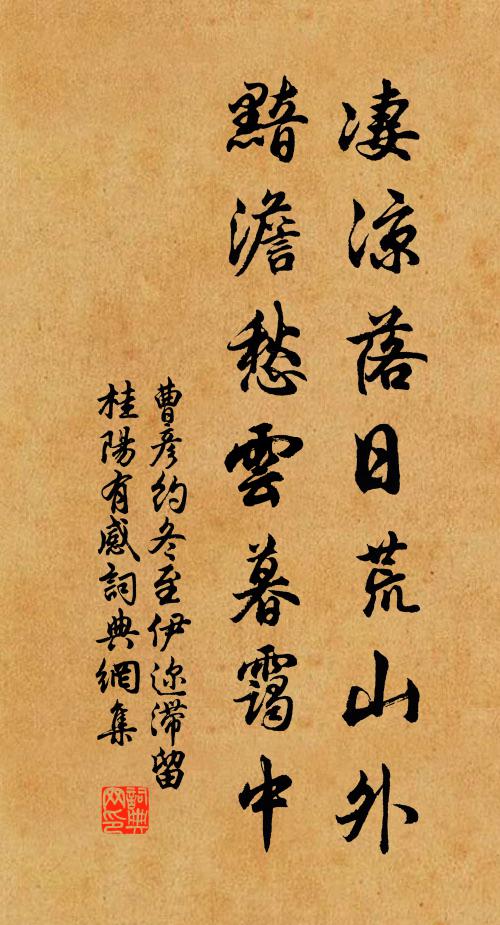 凄涼落日荒山外
黯澹愁雲暮靄中
曹彥約冬至伊邇滯留
桂陽有感詞典網集
詞典
网印